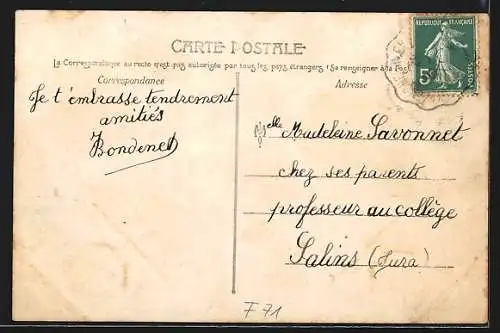 CARTE POSTALE
La Correspondance au recto n'est pas autorisée par tous les pays étrangers (Se renseigner à la Poste
Correspondance
Adresse
REPUBLIQUE FRANÇAISE
5c
POSTES
Je t'embrasse tendrement
amitiés
Bondenet
Melle Madeleine Savonnet
chez ses parents
professeur au collège
Salins (Jura)
F 71